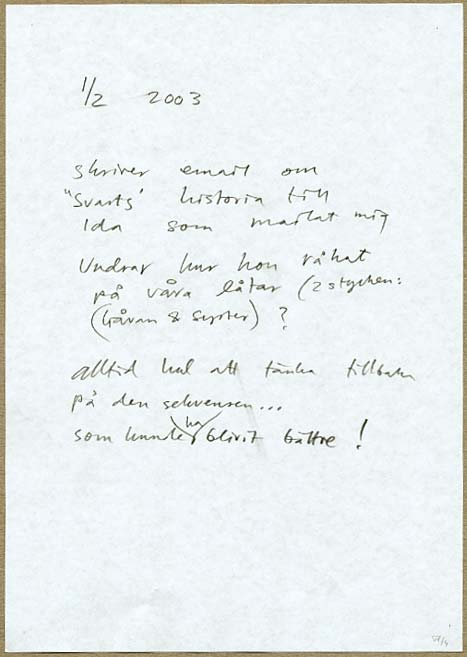 1/2 2003
skriver email om
"Svarts" historia till
Ida som mailat mig
Undrar hur hon råkat
på våra låtar (2 stycken:
(Gåvan & Syster) ?
alltid kul att tänka tillbaka
på den sekvensen...
som kunde ha blivit bättre !